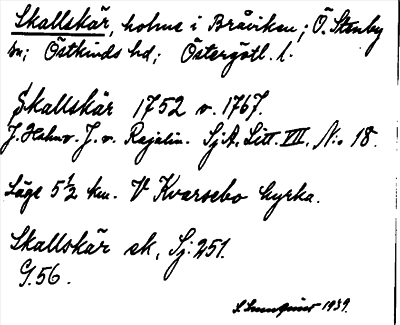 Skallskär, holme i Bråviken; Ö. Stenby
sn; Östkinds hd; Östergötl. l.
Skallskär 1752 o. 1767.
J. Hahn o. J. v. Rajalin. SjA, Litt. VII, N:o 18.
Läge 5 1/2 km. V Kvarsebo kyrka.
Skallskär ek, Sj: 251.
G. 56.
1939.